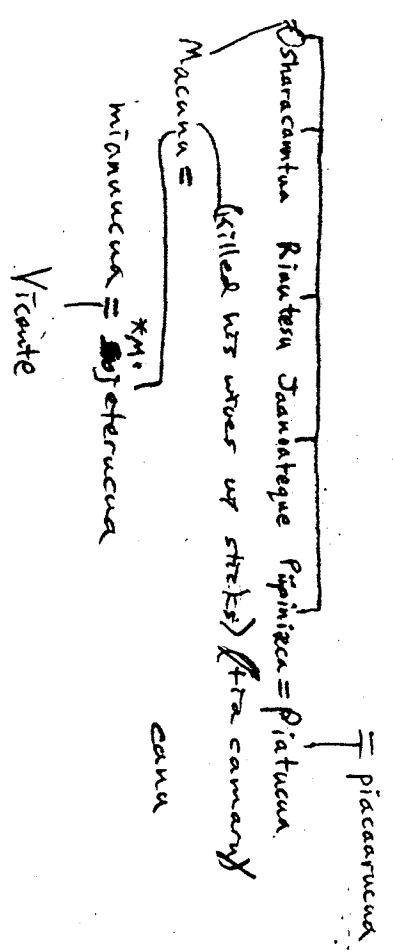 = piacaarucua
Osharacamtua Riautesu Jaanoateque Piipinizca = Piatucua
Macunu =
(killed his wives up sticks) (tia camary)
canu
*M.
mianuucua = jeterucua
Vicente